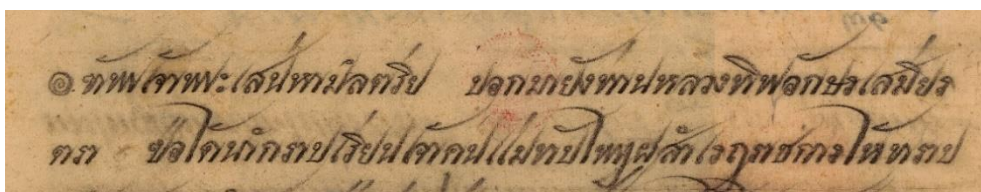 ๏ ข้าพเจ้าพระเสน่หามลตรีย บอกมายังท่านหลวงทิพอักษรเสมียร
ตรา ขอได้นำกราบเรียนเจ้าคุนแม่ทับใหญผู้สำเรจราชการให้ทราบ